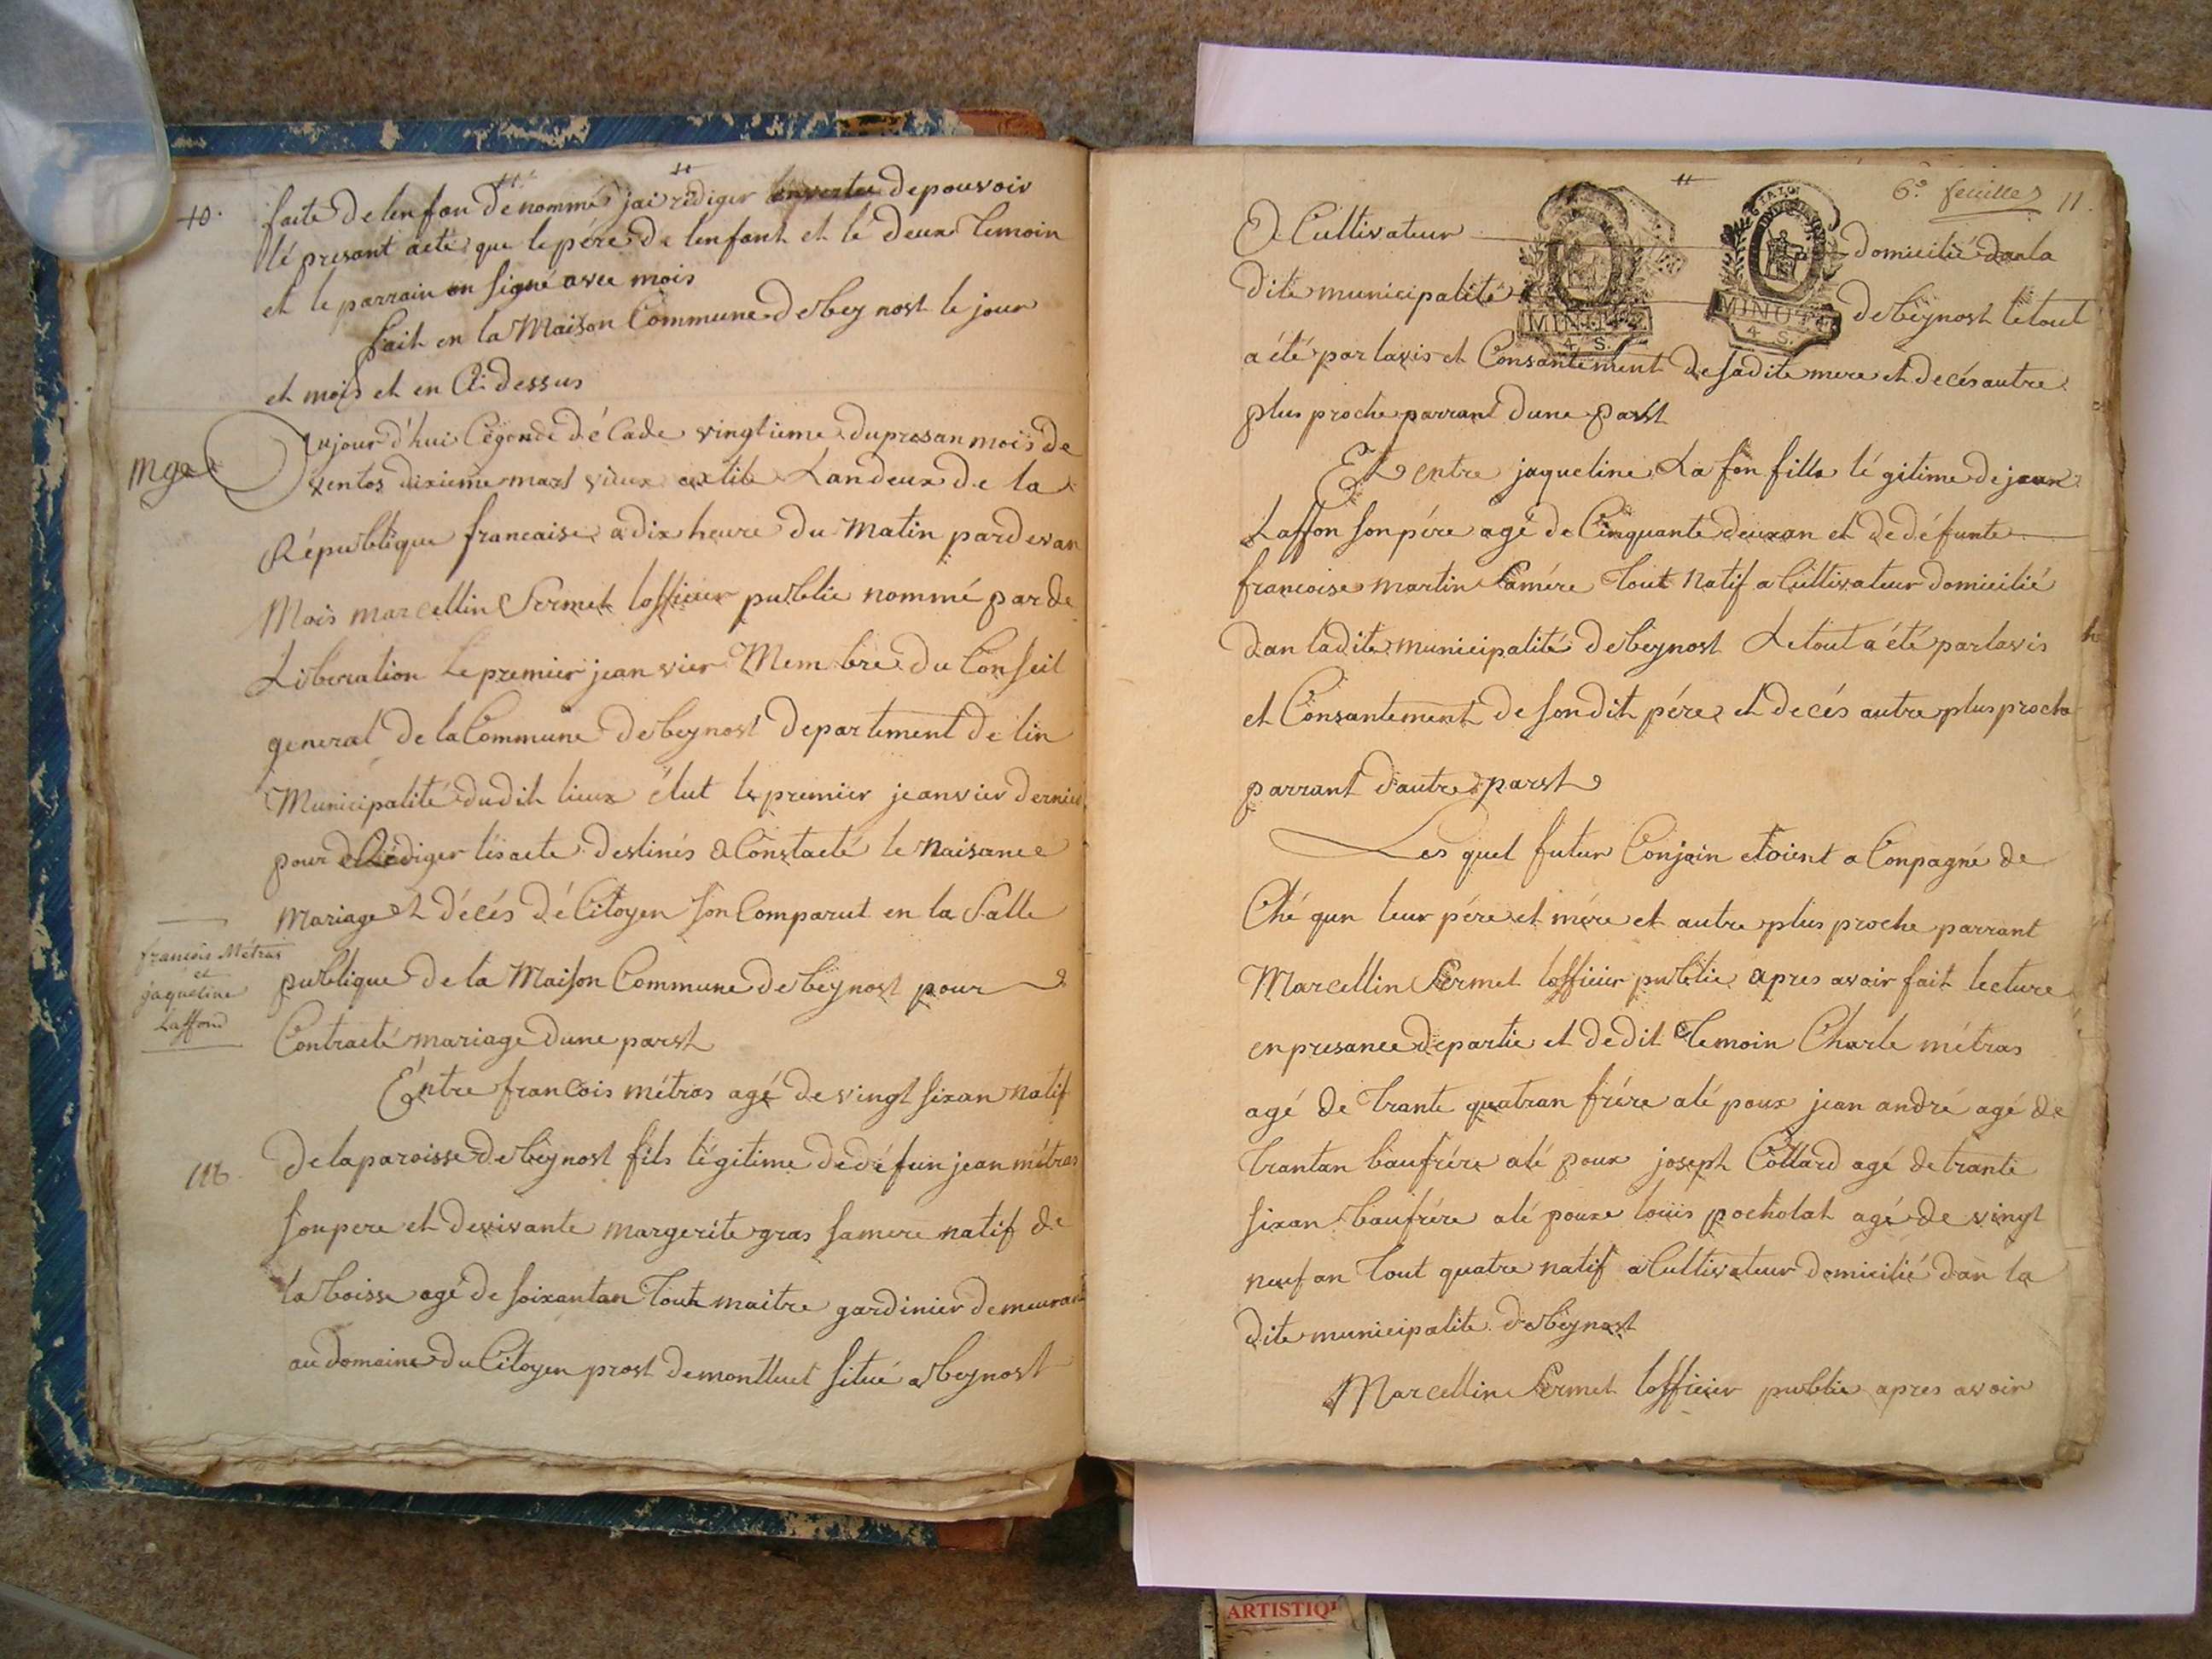 10.
faite de lenfan denommé jai rédiger depouvoir
lé presant acte que le pére de lenfant et lé deux temoin
et le parrain on signé avec mois
fait en la Maison Commune debeynost le jour
et mois et en Ci dessus
mge
Aujour d'hui Cégonde décade vingtieme dupresan mois de
ventos dixieme mars vieux extile Landeux de la
République francaise a dix heure du Matin pardevan
Mois marcellin Sermet lofficier public nommé par de
Liberation le premier jeanvier Membre du Conseil
general de la Commune debeynost departement de lin
Municipalité dudit lieux élut le premier jeanvier dernier
pour Rédiger lés acte destinés a Constacté le Naisance
Mariage et décés dé Citoyen son Comparut en la Salle
publique de la Maison Commune debeynost pour
Contracté mariage dune parst
françois Métras
et
jaqueline
Laffond
Entre francois métras agé de vingt sixan natif
118.
de la paroisse debeynost fils légitime dedéfun jean métras
son pere et de vivante margerite gras samere natif de
la boisse agé de soixantan tout maitre gardinier demeurant
au domaine du Citoyen prost demontluet situé a beynost
6e feuilles 11.
De Cultivateur domicilié dan la
dite municipalité debeynost le tout
MINUTE 4. S.
MINUTE 4. S.
a été par lavis et Consantement de sadite mere et de cés autre
plus proche parrant dune parst
Et entre jaqueline Lafon fille légitime de jean
Laffon son pére agé de Cinquante deuxan et de défunte
francoise martin samére tout Natif a Cultivateur domicilié
dan ladite municipalité debeynost Le tout a été par lavis
et Consantement de son dit pére et de cés autre plus proche
parrant dautre parst
Les quel futur Conjoin etoient a Conpagné de
Ché qun leur pére et mére et autre plus proche parrant
Marcellin Sermet lofficier public apres avoir fait lecture
en presance departie et dedit temoin Charle métras
agé de trante quatran frére alé poux jean andré agé de
trantan baufrére alé poux joseph Collard agé de trante
sixan baufrére alé pouxe louis pocholat agé de vingt
neuf an tout quatre natif a Cultivateur domicilié dan la
dite municipalite debeynost
Marcellin Sermet lofficier public apres avoir
ARTISTIQ